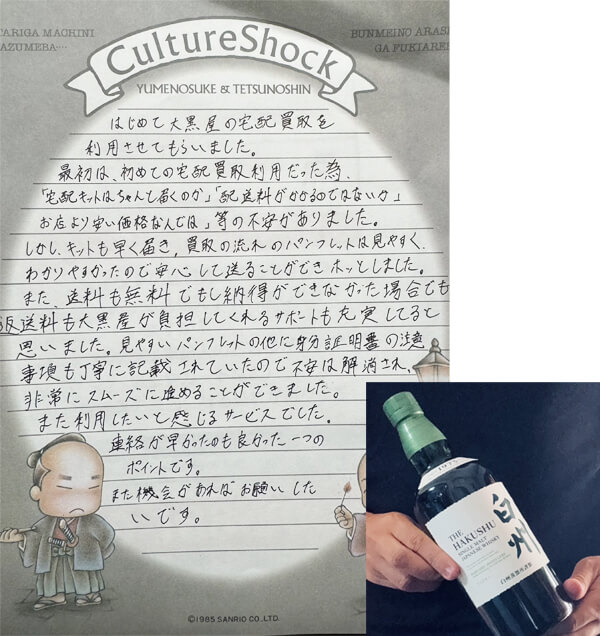 TARIGA MACHINI
AZUMEBA····
BUNMEINO ARAS
GA FUKIARE
CultureShock
YUMENOSUKE & TETSUNOSHIN
はじめて大黒屋の宅配買取を
利用させてもらいました。
最初は、初めての宅配買取利用だった為、
「宅配キットはちゃんと届くのか」「配送料がかかるのではないか」
お店より安い価格なんでは」等の不安がありました。
しかし、キットも早く届き、買取の流れのパンフレットは見やすく、
わかりやすかったので安心して送ることができホッとしました。
また、送料も無料でもし納得ができなかった場合でも
返送料も大黒屋が負担してくれるサポートも充実してると
思いました。見やすいパンフレットの他に身分証明書の注意
事項も丁寧に記載されていたので不安は解消され、
非常にスムーズに進めることができました。
また利用したいと感じるサービスでした。
連絡が早かったのも良かった一つの
ポイントです。
また機会があればお願いした
いです。
©1985 SANRIO CO.,LTD.
1973
白州
THE
HAKUSHU
SINGLE MALT
JAPANESE WHISKY
白州蒸溜所謹製